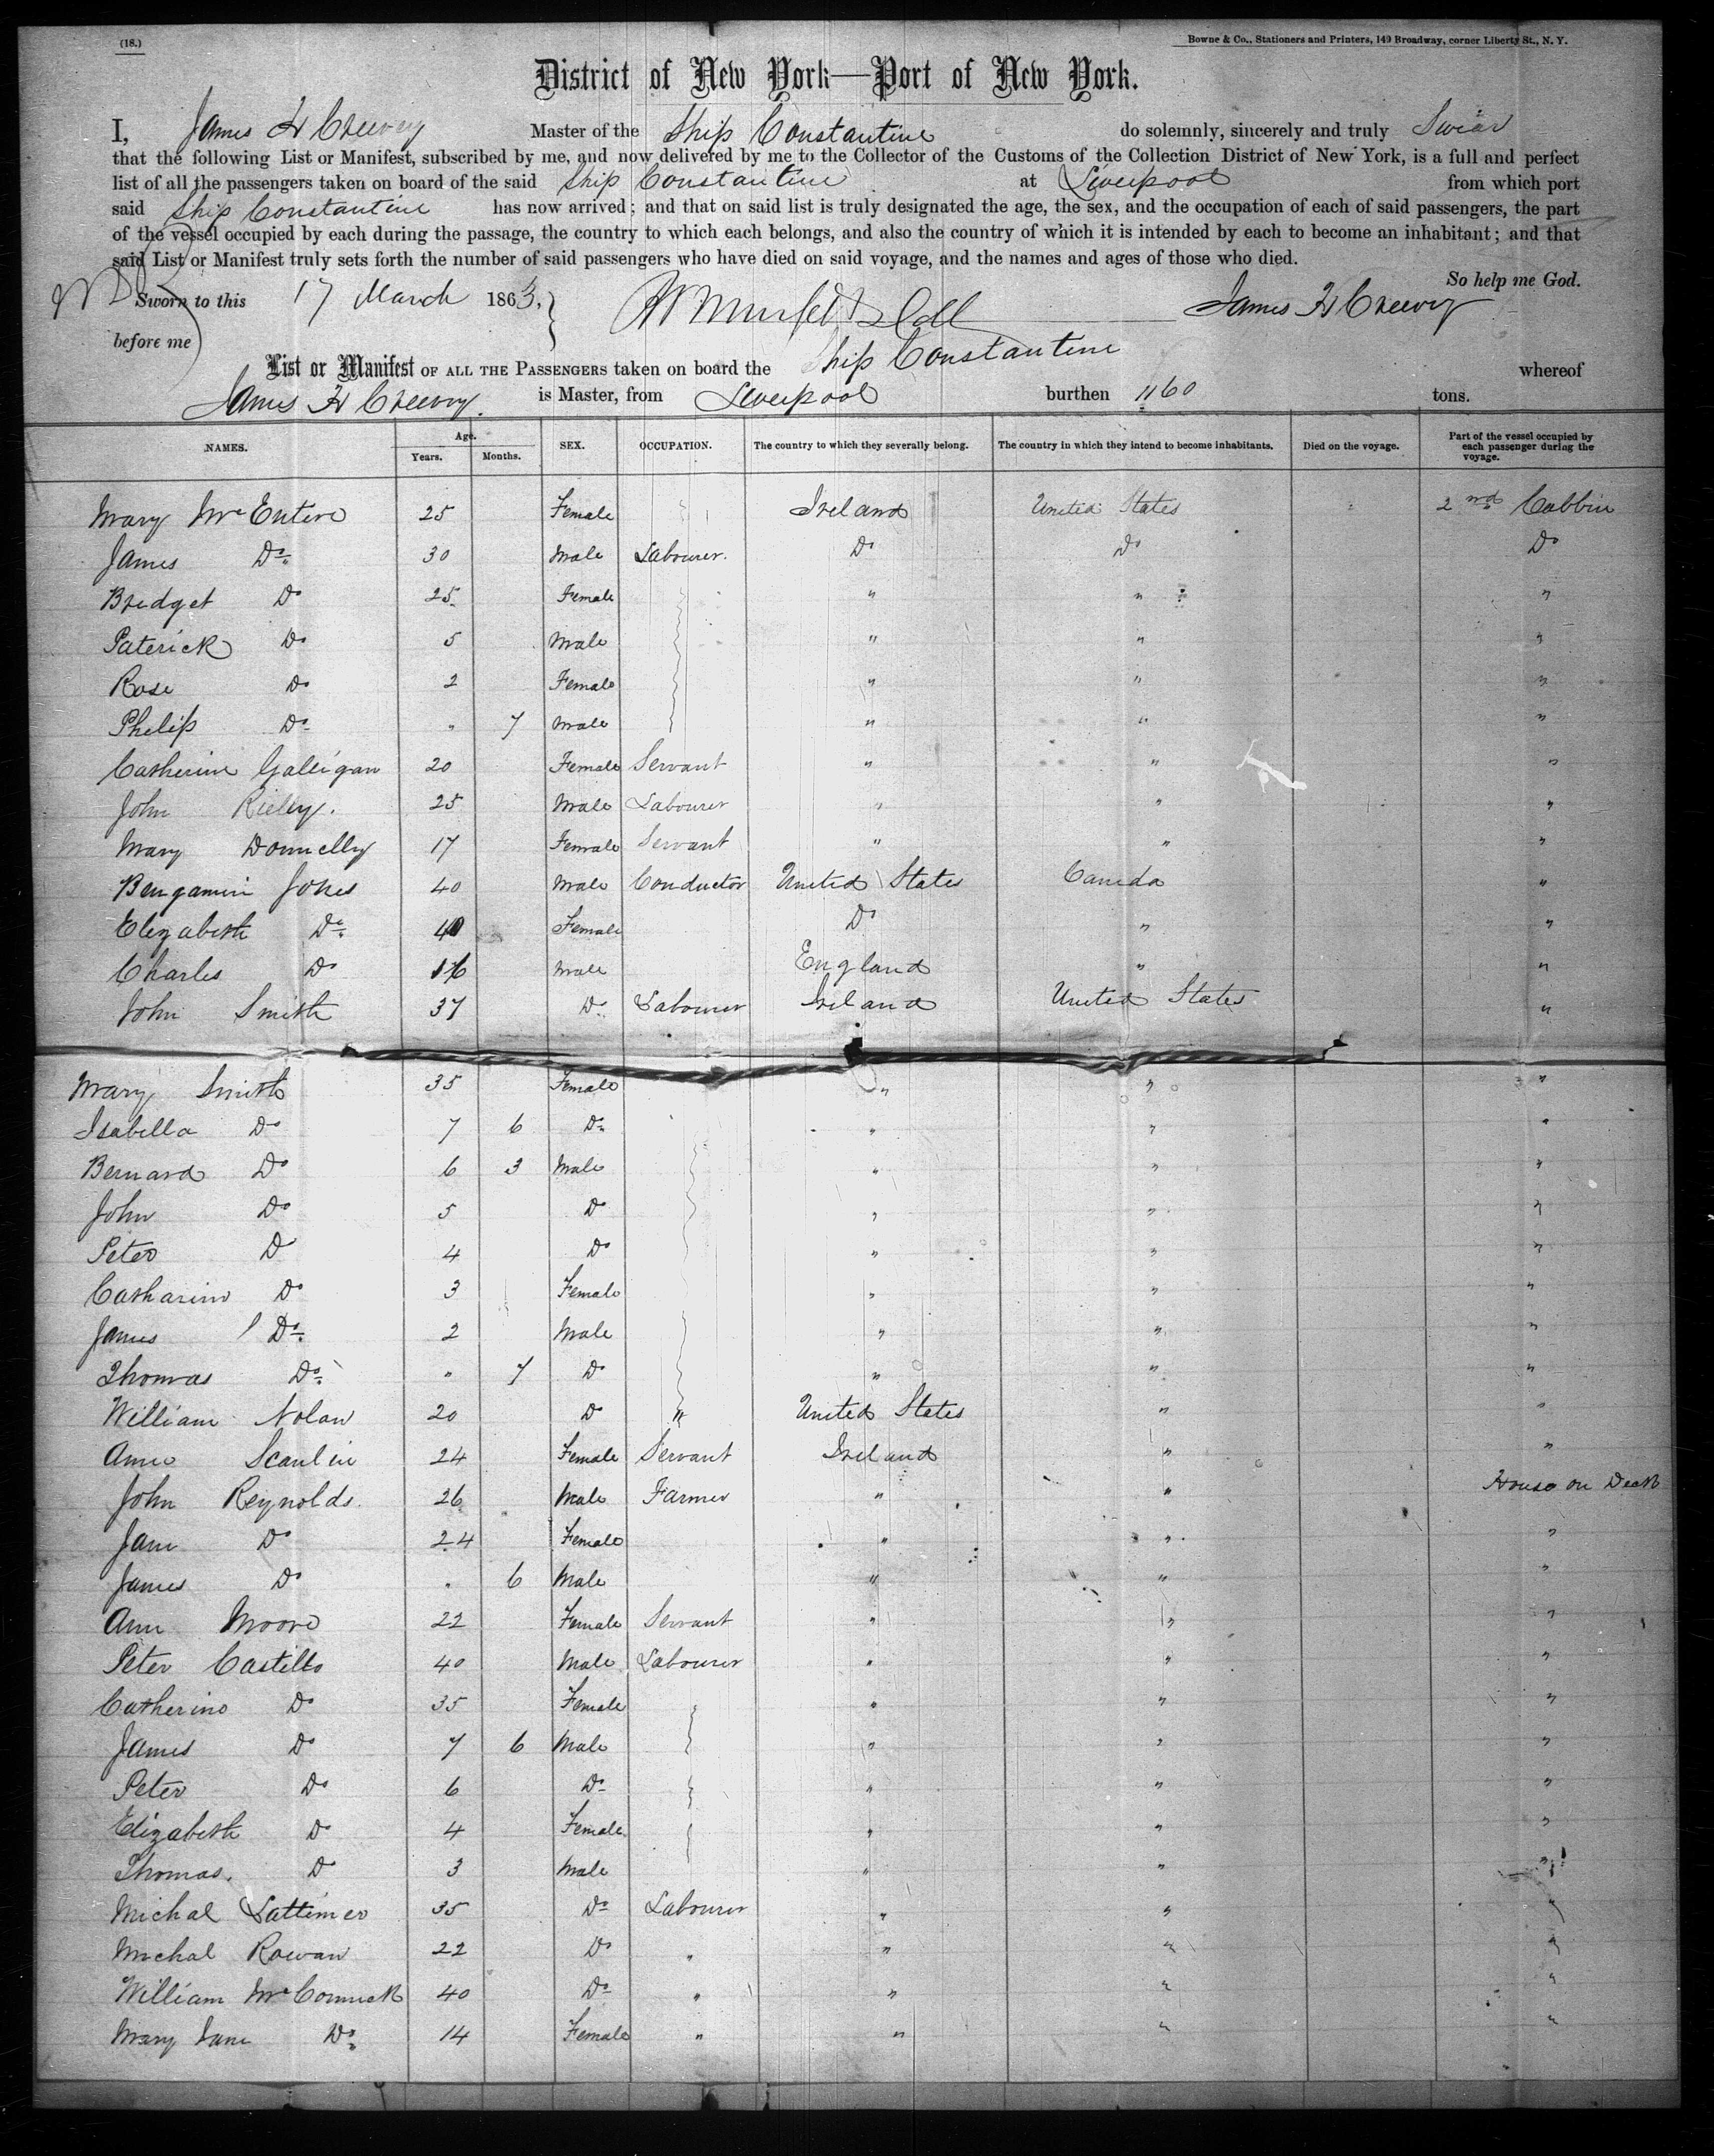 (18.)
Bowne & Co., Stationers and Printers, 149 Broadway, corner Liberty St., N. Y.
District of New York—Port of New York.
I, James H Creevey Master of the Ship Constantine do solemnly, sincerely and truly Swear
that the following List or Manifest, subscribed by me, and now delivered by me to the Collector of the Customs of the Collection District of New York, is a full and perfect
list of all the passengers taken on board of the said Ship Constantine at Liverpool from which port
said Ship Constantine has now arrived; and that on said list is truly designated the age, the sex, and the occupation of each of said passengers, the part
of the vessel occupied by each during the passage, the country to which each belongs, and also the country of which it is intended by each to become an inhabitant; and that
said List or Manifest truly sets forth the number of said passengers who have died on said voyage, and the names and ages of those who died.
So help me God.
Sworn to this 17 March 1863, James H Creevey
before me
List or Manifest OF ALL THE PASSENGERS taken on board the Ship Constantine whereof
James H Creevey is Master, from Liverpool burthen 1160 tons.
NAMES. Age. Years. Months. SEX. OCCUPATION. The country to which they severally belong. The country in which they intend to become inhabitants. Died on the voyage. Part of the vessel occupied by each passenger during the voyage.
Mary McEntire 25 Female Ireland United States 2nd Cabbin
James Do 30 Male Labourer. Do Do Do
Bridget Do 25 Female " " "
Paterick Do 5 Male " " "
Rose Do 2 Female " " "
Philip Do " 7 Male " " "
Catherine Galligan 20 Female Servant " " "
John Rielly. 25 Male Labourer " " "
Mary Donnelly 17 Female Servant " " "
Bengamin Jones 40 Male Conductor United States Canada "
Elizabeth Do 40 Female Do " "
Charles Do 16 Male England " "
John Smith 37 Do Labourer Ireland United States "
Mary Smith 35 Female " " "
Isabella Do 7 6 Do " " "
Bernard Do 6 3 Male " " "
John Do 5 Do " " "
Peter Do 4 Do " " "
Catharine Do 3 Female " " "
James Do 2 Male " " "
Thomas Do " 7 Do " " "
William Nolan 20 Do " United States " "
Anne Scanlin 24 Female Servant Ireland " "
John Reynolds 26 Male Farmer " " House on Deck
Jane Do 24 Female " " "
James Do " 6 Male " " "
Ann Moore 22 Female Servant " " "
Peter Castillo 40 Male Labourer " " "
Catherine Do 35 Female " " "
James Do 7 6 Male " " "
Peter Do 6 Do " " "
Elizabeth Do 4 Female " " "
Thomas. Do 3 Male " " "
Michal Lattimer 35 Do Labourer " " "
Michal Rowan 22 Do " " " "
William McCormick 40 Do " " " "
Mary Jane Do 14 Female " " " "